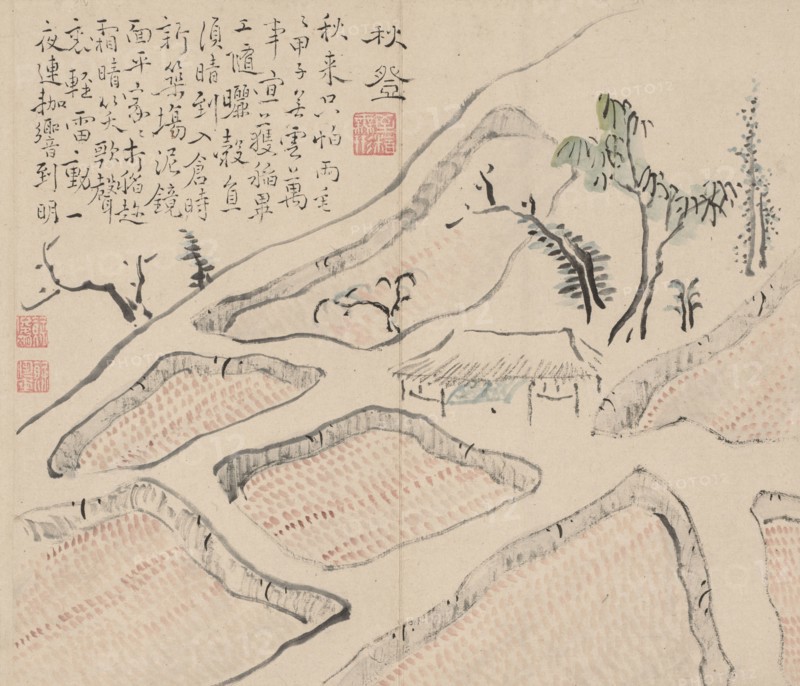 秋登
秋来只怕雨垂
〻甲子无雲萬
事宜穫稻畢
工隨曬穀直
須晴到入倉時
新築場泥鏡
面平家〻打稻趂
霜晴笑歌聲
裏輕雷動一
夜連枷響到明